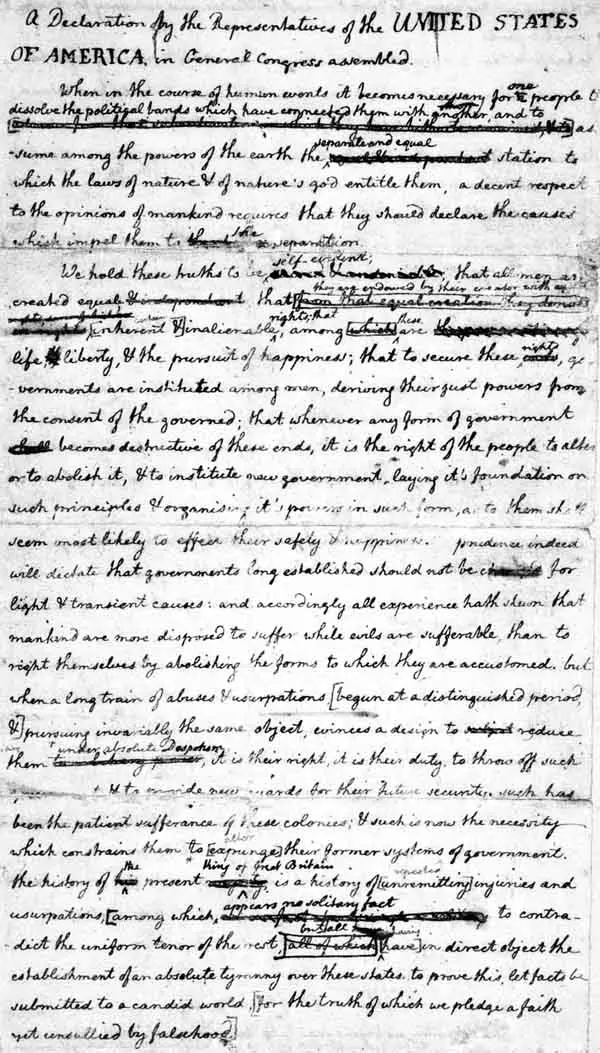 A Declaration by the Representatives of the UNITED STATES
OF AMERICA, in General Congress assembled.
When in the course of human events it becomes necessary for one people to
dissolve the political bands which have connected them with another, and to as
-sume among the powers of the earth the separate and equal station to
which the laws of nature & of nature's god entitle them, a decent respect
to the opinions of mankind requires that they should declare the causes
which impel them to the separation.
We hold these truths to be self-evident; that all men are
created equal & independant that they are endowed by their creator with
[from that equal creation they derive
rights; that these
[inherent &] inalienable, among [which] are
life & liberty, & the pursuit of happiness; that to secure these rights, go
-vernments are instituted among men, deriving their just powers from
the consent of the governed; that whenever any form of government
shall becomes destructive of these ends, it is the right of the people to alter
or to abolish it, & to institute new government, laying it's foundation on
such principles & organising it's powers in such form, as to them shall
seem most likely to effect their safety & happiness. prudence indeed
will dictate that governments long established should not be for
light & transient causes: and accordingly all experience hath shewn that
mankind are more disposed to suffer while evils are sufferable, than to
right themselves by abolishing the forms to which they are accustomed. but
when a long train of abuses & usurpations [begun at a distinguished period,
&] pursuing invariably the same object, evinces a design to subject reduce
under absolute Despotism
them it is their right, it is their duty, to throw off such
& to provide new guards for their future security. such has
been the patient sufferance of these colonies; & such is now the necessity
alter
which constrains them to [expunge] their former systems of government.
the King of Great Britain repeated
the history of his present majesty, is a history of [unremitting] injuries and
appears no solitary fact
usurpations, [among which, to contra-
but all having
-dict the uniform tenor of the rest, [all of which] [have] in direct object the
establishment of an absolute tyranny over these states. to prove this, let facts be
submitted to a candid world, [for the truth of which we pledge a faith
yet unsullied by falsehood.]